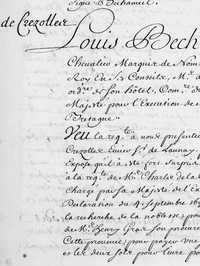 Signé Bechameil
de Crezolles
Louis Bech
Chevalier Marquis de Nom
Roy En Ses Conseils, Me d
ordre de son hôtel, Com.re de
Majesté pour l'Execution de
Bretagne
Veu la reqte a nous présentée
Crezolles Louis Sr de Launay
Exposé quil a été fort surpris
a la reqte de Me Charles de la
Chargé par sa Majesté de l'E
Déclaration du 4 septembre 16
la recherche de la noblesse p
de Me Henry Gras son procureur
Cette province, pour payer une a
et les deux sols pour livre po